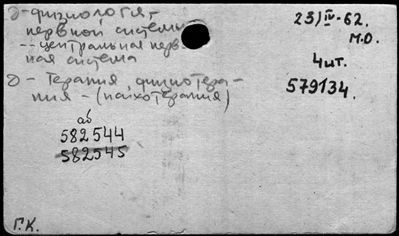 д - физиология,
нервной системы
-- центральная нерв-
ная система
д - Терапия, физиотера-
пия - (психотерапия)
аб
582544
582545
23/IV-62.
М.О.
4 шт.
579134.
Г.К.